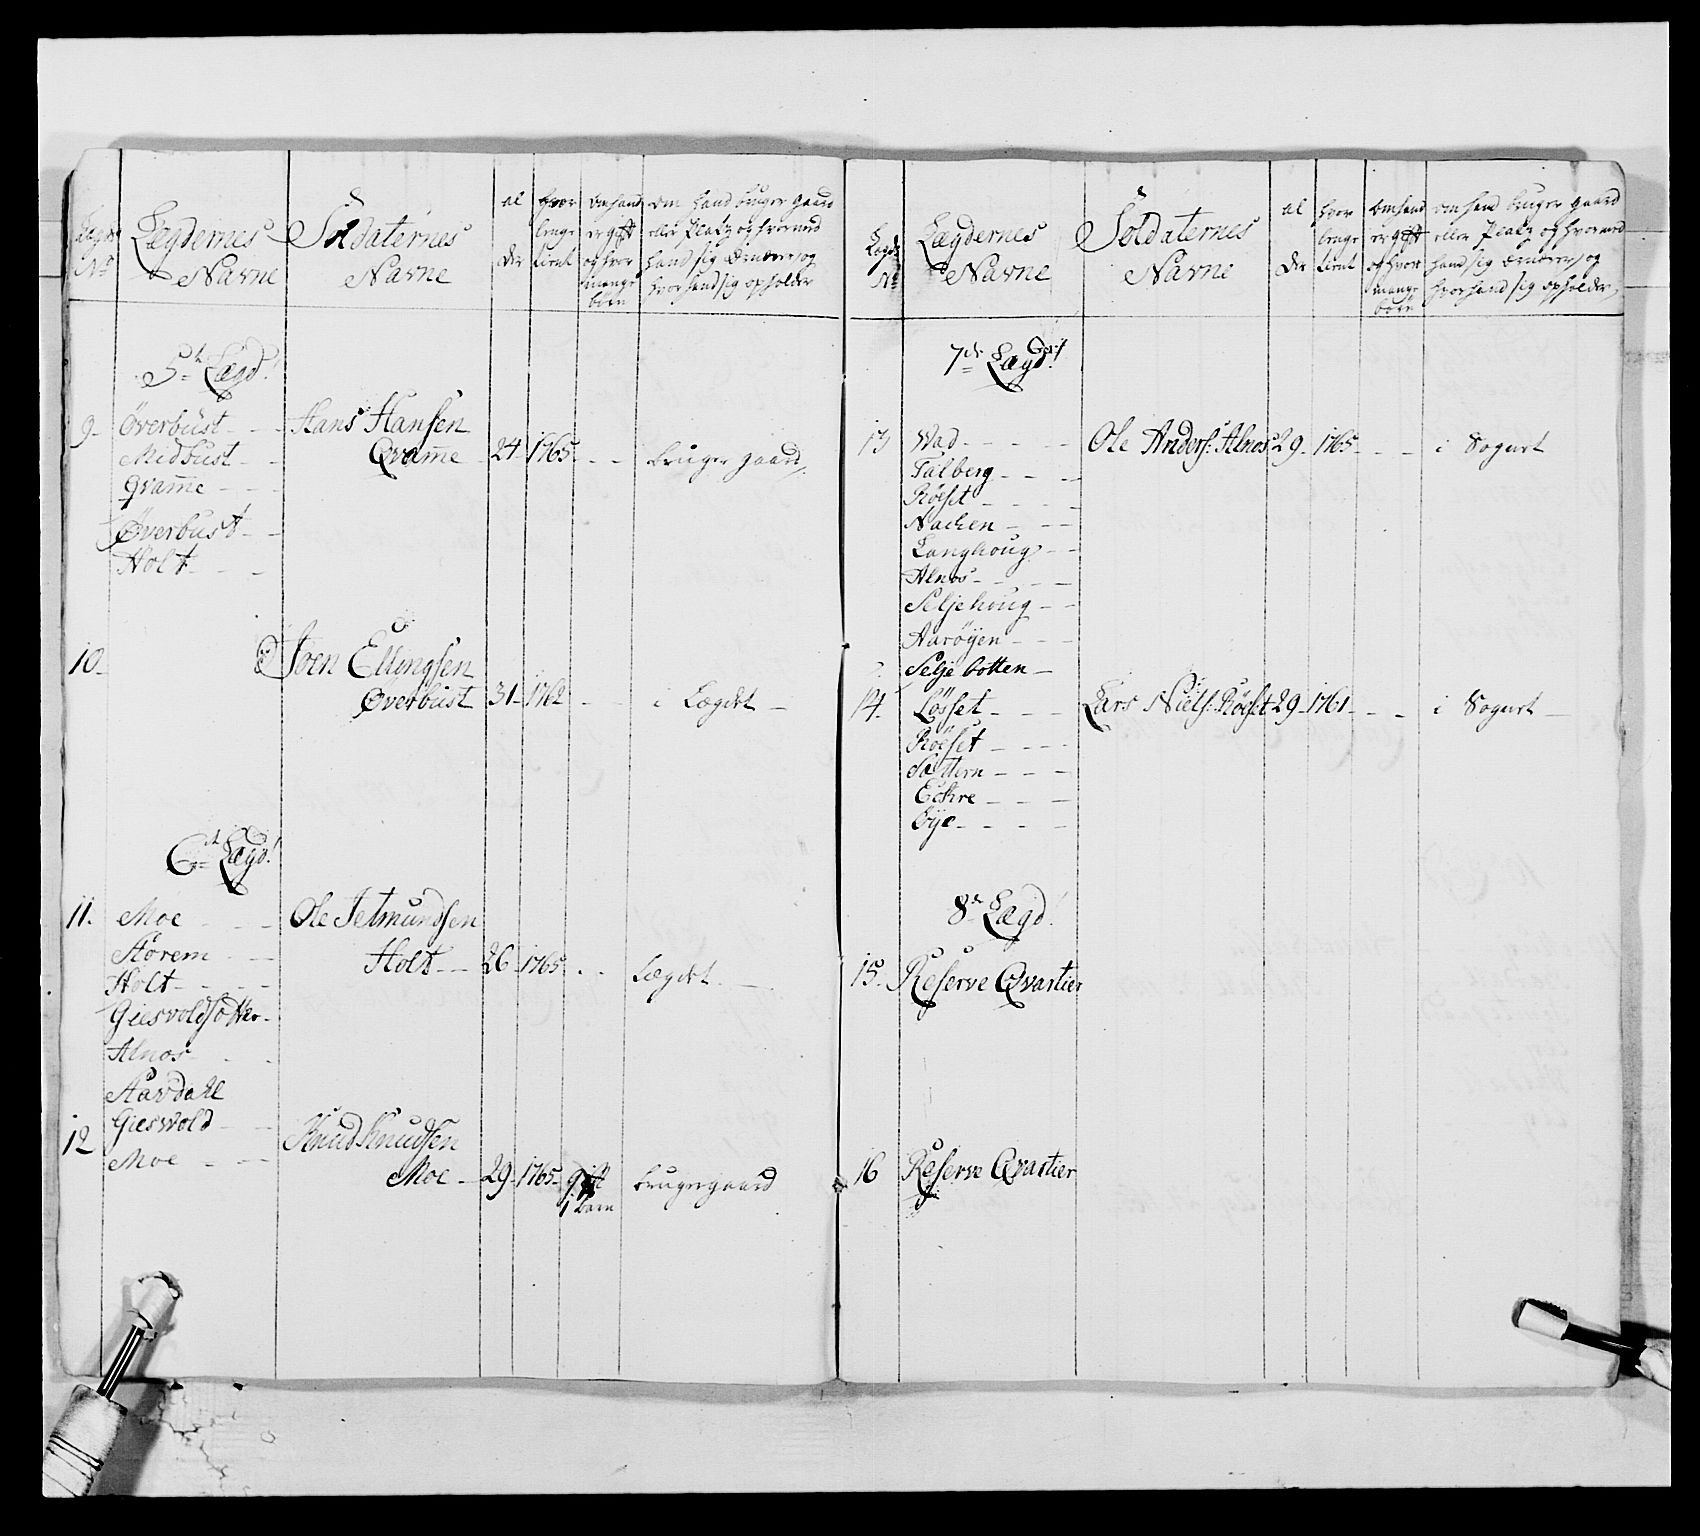 Lægdernes
Navne
Soldaternes
Navne
al
der
hvor
lenge
tient
om hand
er gift
og hvor
mange
børn
om hand bruger gaard
eller Platz og hvormed
hand sig ernærer, og
hvor hand sig opholder
5te Lægd!
9. Øverbust - - - Hans Hansen
Midbust - - Qvam̄e - 24 - 1765 - - - bruger gaard
qvam̄e - - -
Øverbust - -
Holt - - -
10. Joen Ellingsen
Øverbust 31 - 1762 - - - i Lægdet -
6te Lægd!
11. Moe - - - Ole Jetmundsen
Storem - - Holt - - 26 - 1765 - - Lægdet -
Holt - - - -
Giesvoldsætter -
Alnos - - -
Aavdahl
12 Gieswold - - Knud Knudsen
Moe - - - Moe - 29 - 1765 - gift
1 barn bruger gaard
Lægds
No
Lægdernes
Navne
Soldaternes
Navne
al
der
hvor
lenge
tient
om hand
er gift
og hvor
mange
børn
om hand bruger gaard
eller Platz og hvormed
hand sig ernærer, og
hvor hand sig opholder
7de Lægd!
13 Wad - - - - Ole Anders: Alnos 29 - 1765 - - - i Sognet
Talberg - - -
Röeset - - - -
Nachen - - -
Langhoug - -
Alnos - - - -
Seljehoug - -
Aarøyen - - -
Seljebotten -
14. Løsset - - - Lars Niels: Röeset 29 - 1761 - - - i Sognet -
Röeset - - -
Sættern - - -
Eckre - - -
Øye - - - -
8de Lægd!
15. Reserve Qvartier
16 Reserve Qvartier